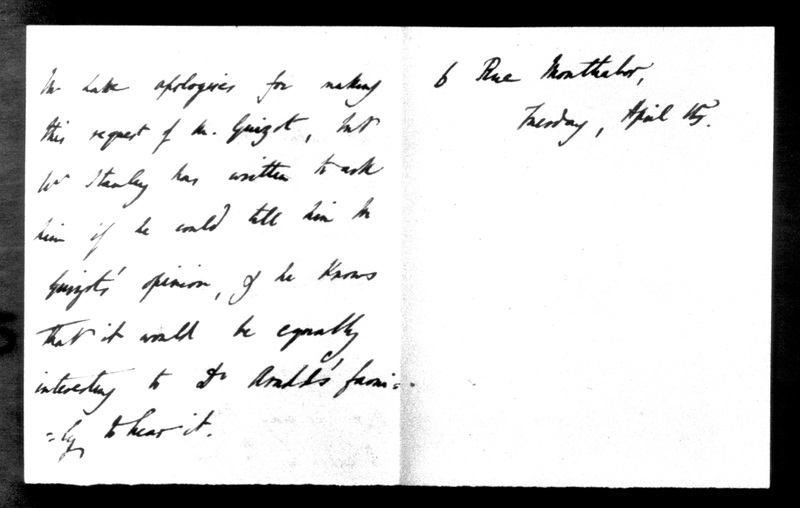 Mr Lake apologises for making
this request of M. Guizot, but
Mr Stanley has written to ask
him if he could tell him M
Guizot's opinion, & he knows
that it would be equally
interesting to Dr Arnold's fami=
=ly to hear it.
6 Rue Monthabor,
Tuesday, April 15.